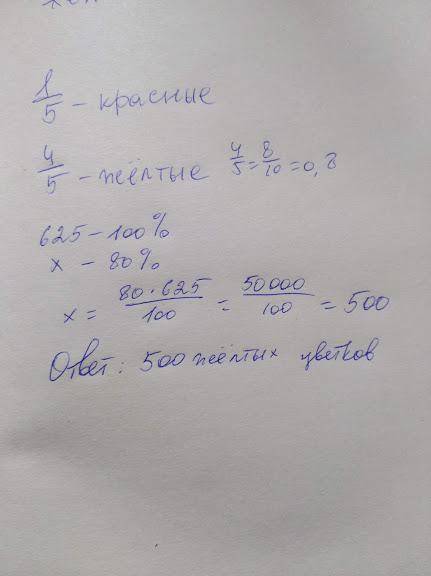 1/5 - красные
4/5 - жёлтые 4/5 = 8/10 = 0,8
625 - 100%
x - 80%
x = 80·625/100 = 50000/100 = 500
Ответ: 500 жёлтых цветков